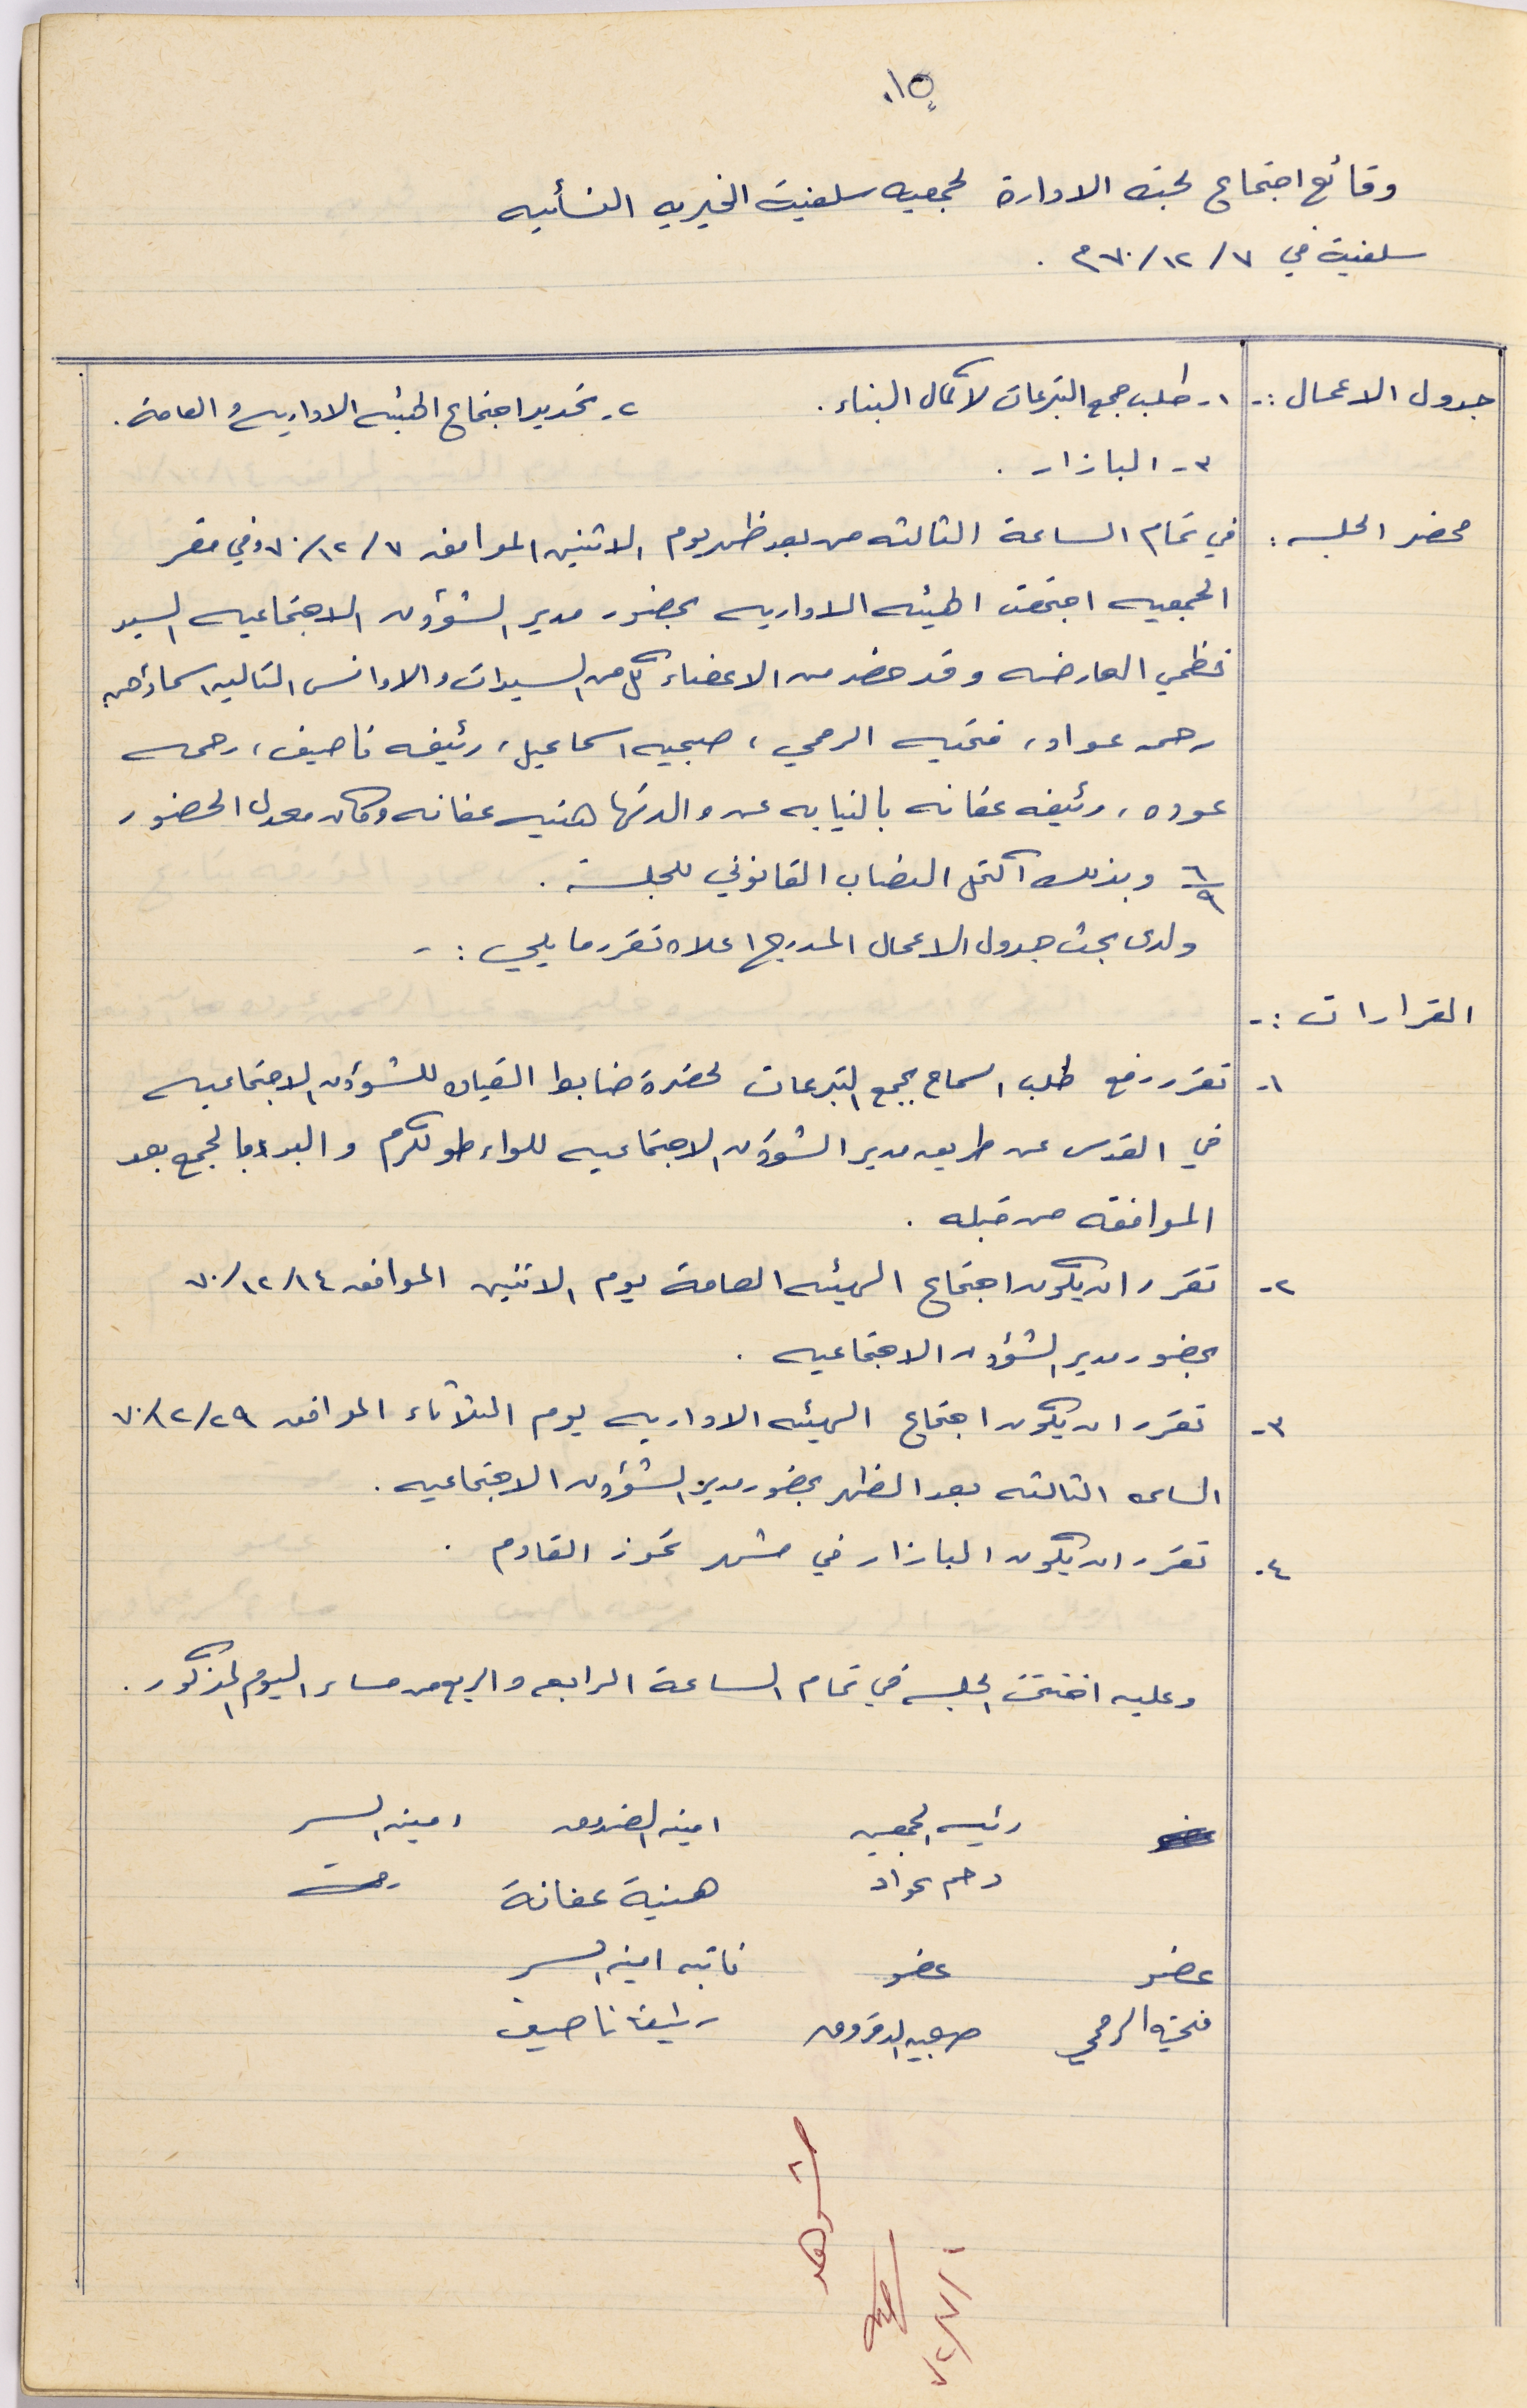 ١٥.
وقائع اجتماع لجنة الادارة لجمعيه سلفيت الخيريه النسائيه
سلفيت في ٧٠/١٢/٧م .
جدول الاعمال :- ١- طلب جمع التبرعات لاكمال البناء . ٢- تحديد اجتماع الهيئه الاداريه والعامة .
٣- البازار .
محضر الجلسه : في تمام الساعة الثالثه من بعد ظهر يوم الاثنين الموافق ٧٠/١٢/٧ وفي مقر
الجمعيه اجتمعت الهيئه الاداريه بحضور مدير الشؤون الاجتماعيه السيد
نظمي العارضه وقد حضر من الاعضاء كل من السيدات والاوانس التاليه اسماؤهن
رحمه عواد، فتحيه الرمحي، صبحيه اسماعيل، رئيفه ناصيف، رحمه
عوده، رئيفه عفانه بالنيابه عن والدتها هنيه عفانه وكان معدل الحضور
٦/٩ وبذلك اكتمل النصاب القانوني للجلسة .
ولدى بحث جدول الاعمال المدرج اعلاه تقرر ما يلي :-
القرارات :-
١- تقرر رفع طلب السماح بجمع التبرعات لحضرة ضابط القياده للشؤون الاجتماعيه
في القدس عن طريق مدير الشؤون الاجتماعيه للواء طولكرم والبدء بالجمع بعد
الموافقه من قبله .
٢- تقرر ان يكون اجتماع الهيئه العامة يوم الاثنين الموافق ٧٠/١٢/١٤
بحضور مدير الشؤون الاجتماعيه .
٣- تقرر ان يكون اجتماع الهيئه الاداريه يوم الثلاثاء الموافق ٧٠/١٢/٢٩
الساعه الثالثه بعد الظهر بحضور مدير الشؤون الاجتماعيه .
٤- تقرر ان يكون البازار في شهر تموز القادم .
وعليه اختتمت الجلسه في تمام الساعة الرابعه والربع من مساء اليوم المذكور .
رئيسه الجمعيه امينه الصندوق امينه السر
رحمه عواد هنية عفانة رحمة
عضو عضو نائبه امينه السر
فتحيه الرمحي صبحيه رئيفه ناصيف
شوهد
٧٢/٧/١